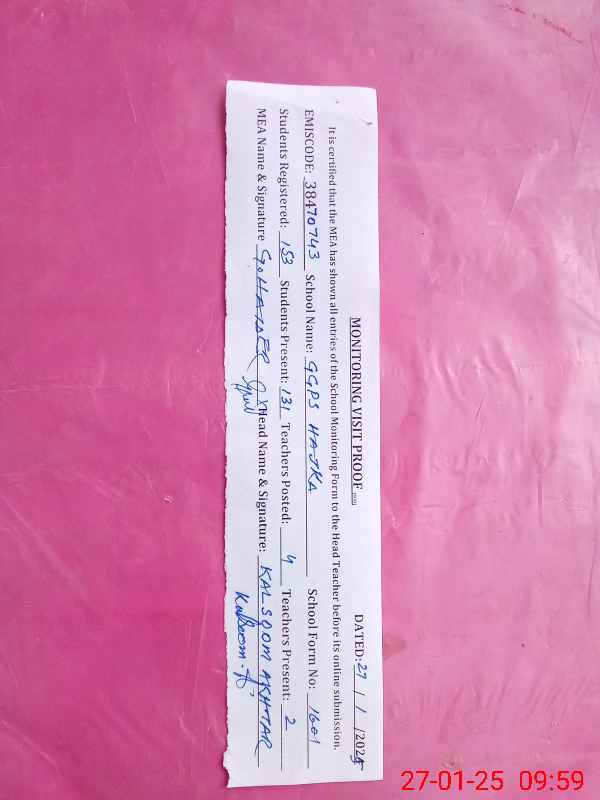 MONITORING VISIT PROOF DATED: 27 / 1 /2025
It is certified that the MEA has shown all entries of the School Monitoring Form to the Head Teacher before its online submission.
EMISCODE: 38470743 School Name: GGPS HAJKA School Form No: 1601
Students Registered: 153 Students Present: 131 Teachers Posted: 4 Teachers Present: 2
MEA Name & Signature Head Name & Signature: KALSOOM AKHTAR
Kalsoom. A
27-01-25 09:59